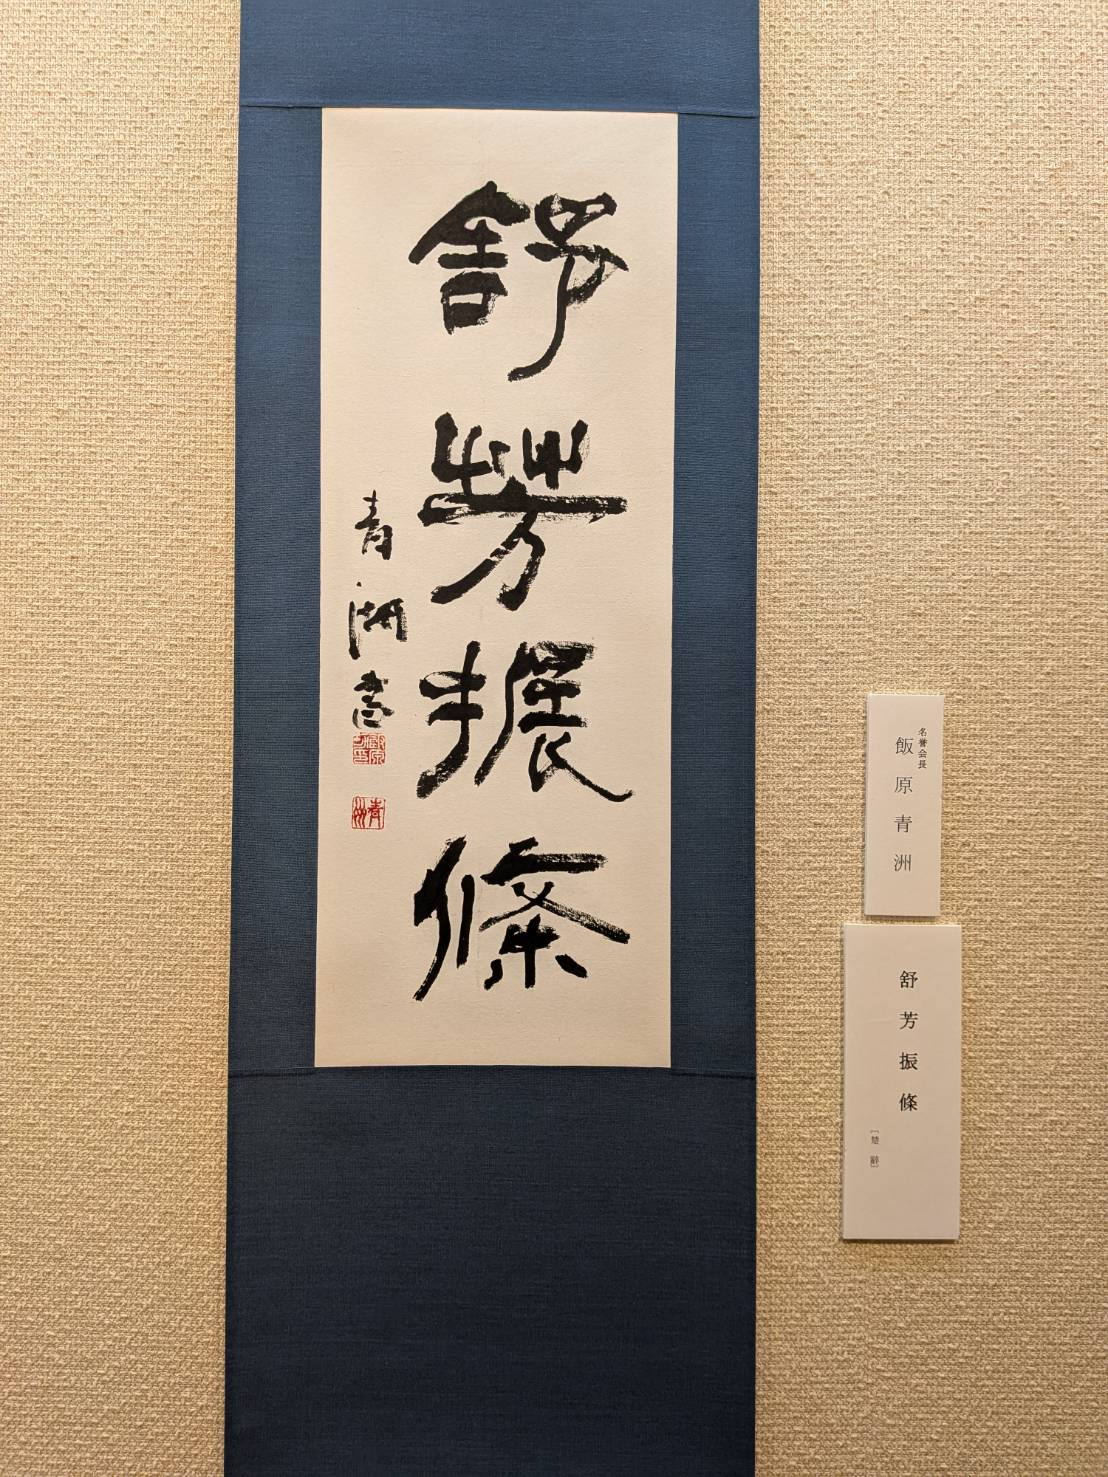 舒芳振條
青洲書
名誉会長
飯原青洲
舒芳振條
〔楚辭〕